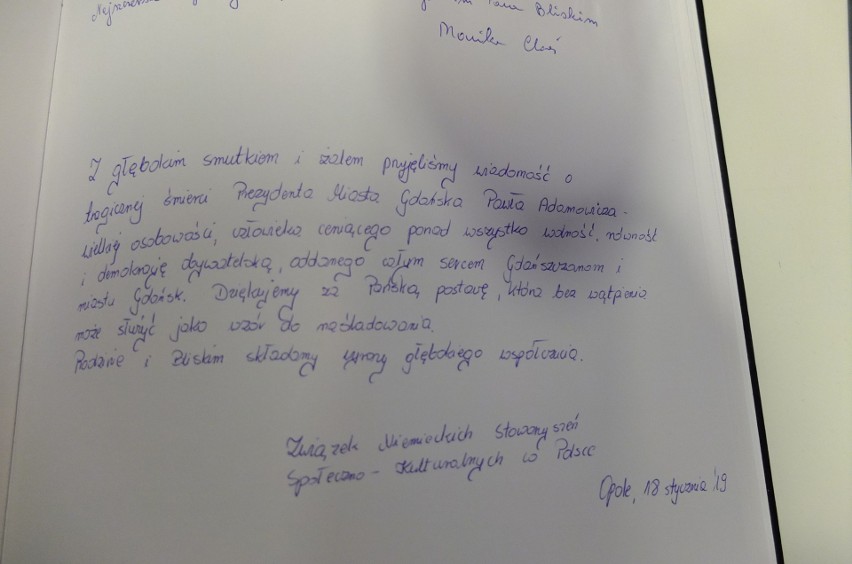 Bliskim
Monika
Z głębokim smutkiem i żalem przyjęliśmy wiadomość o
tragicznej śmierci Prezydenta Miasta Gdańska Pawła Adamowicza -
wielkiej osobowości, człowieka ceniącego ponad wszystko wolność, równość
i demokrację obywatelską, oddanego całym sercem Gdańszczanom i
miastu Gdańsk. Dziękujemy za Pańską postawę, która bez wątpienia
może służyć jako wzór do naśladowania.
Rodzinie i Bliskim składamy wyrazy głębokiego współczucia.
Związek Niemieckich Stowarzyszeń
Społeczno - Kulturalnych w Polsce
Opole, 18 stycznia '19